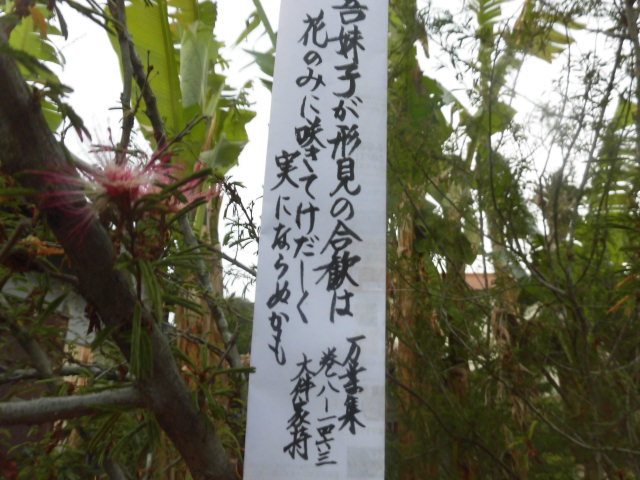 吾妹子が形見の合歓は
花のみに咲きてけだしく
実にならぬかも
万葉集
巻八ー一四六三
大伴家持